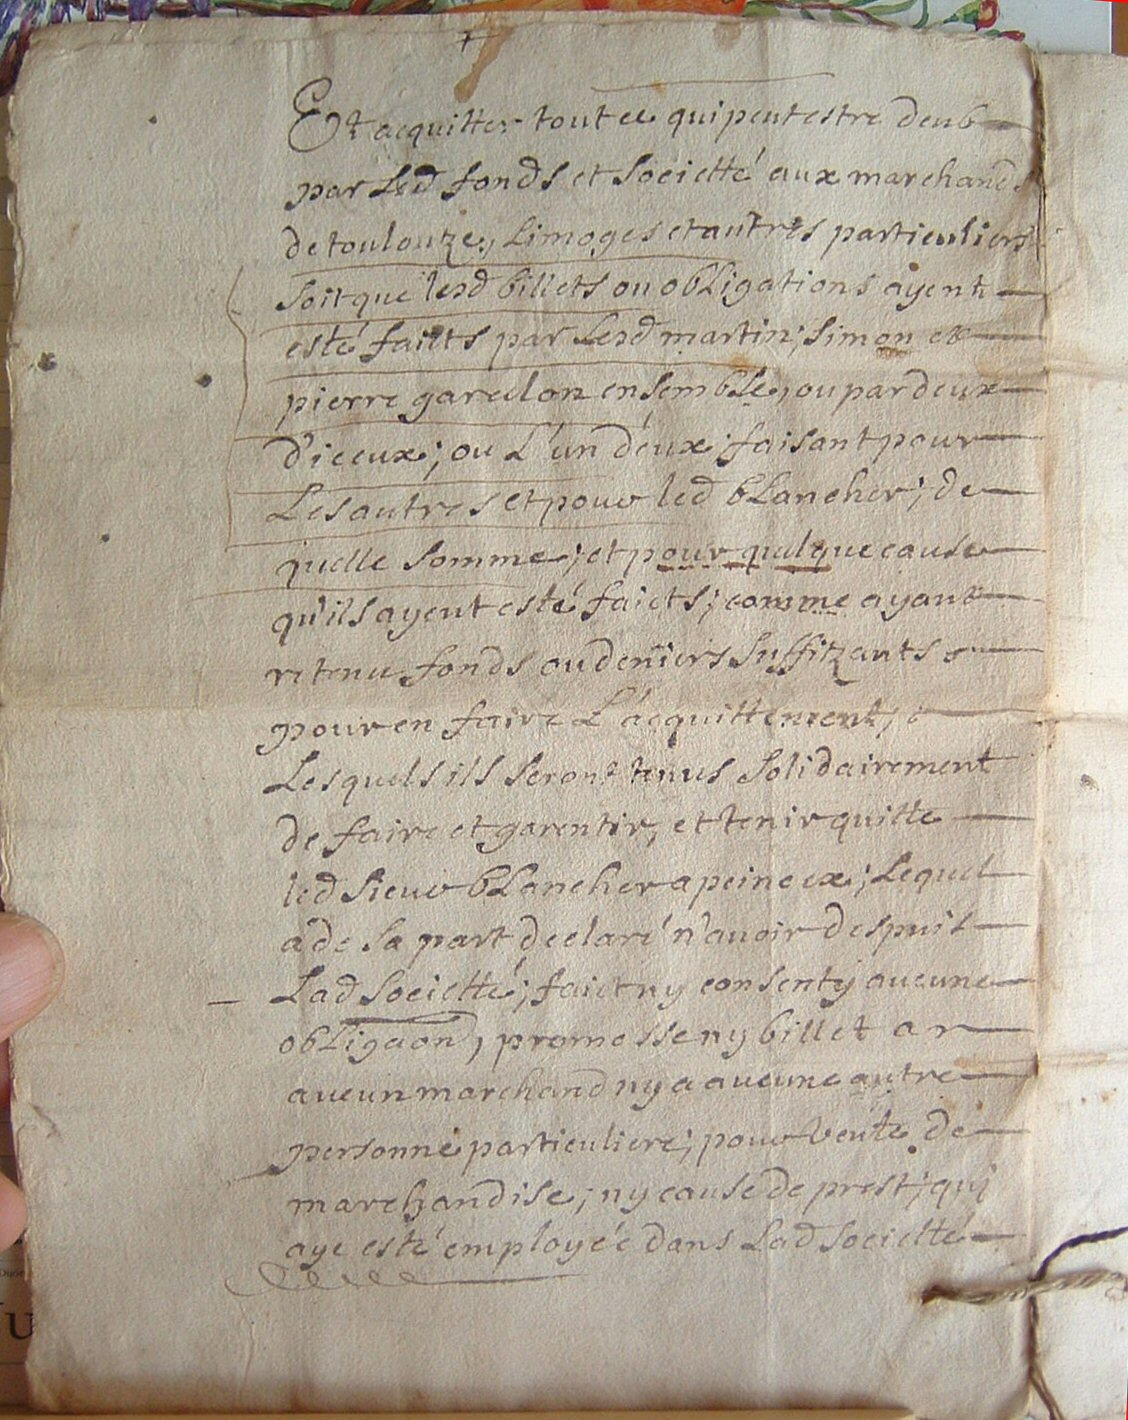 Et acquitter tout ce qui peut estre deub
par led fonds et Societté aux marchands
de toulouze, Limoges et autres particuliers
Soit que lesd billets ou obligations ayent
esté faicts par Lesd martin; Simon et
pierre garedon ensemble, ou par deux
d'iceux; ou L'un d'eux faisant pour
Les autres et pour led blancher; de
quelle somme; et pour quelque cause
qu'ils ayent esté faicts; comme ayant
retenu fonds ou deniers Suffizants
pour en faire L'acquittement;
Lesquels ils seront tenus Solidairement
de faire et garentir, et tenir quitte
led Sieur blancher a peine ex; Lequel
a de Sa part declaré n'avoir despuis
Lad Societté; faict ny consenty aucune
obligaon, promesse ny billet a
aucun marchand ny a aucune autre
personne particuliere; pour vente de
marchandise; ny cause de prest; qui
aye esté employée dans Lad Societté